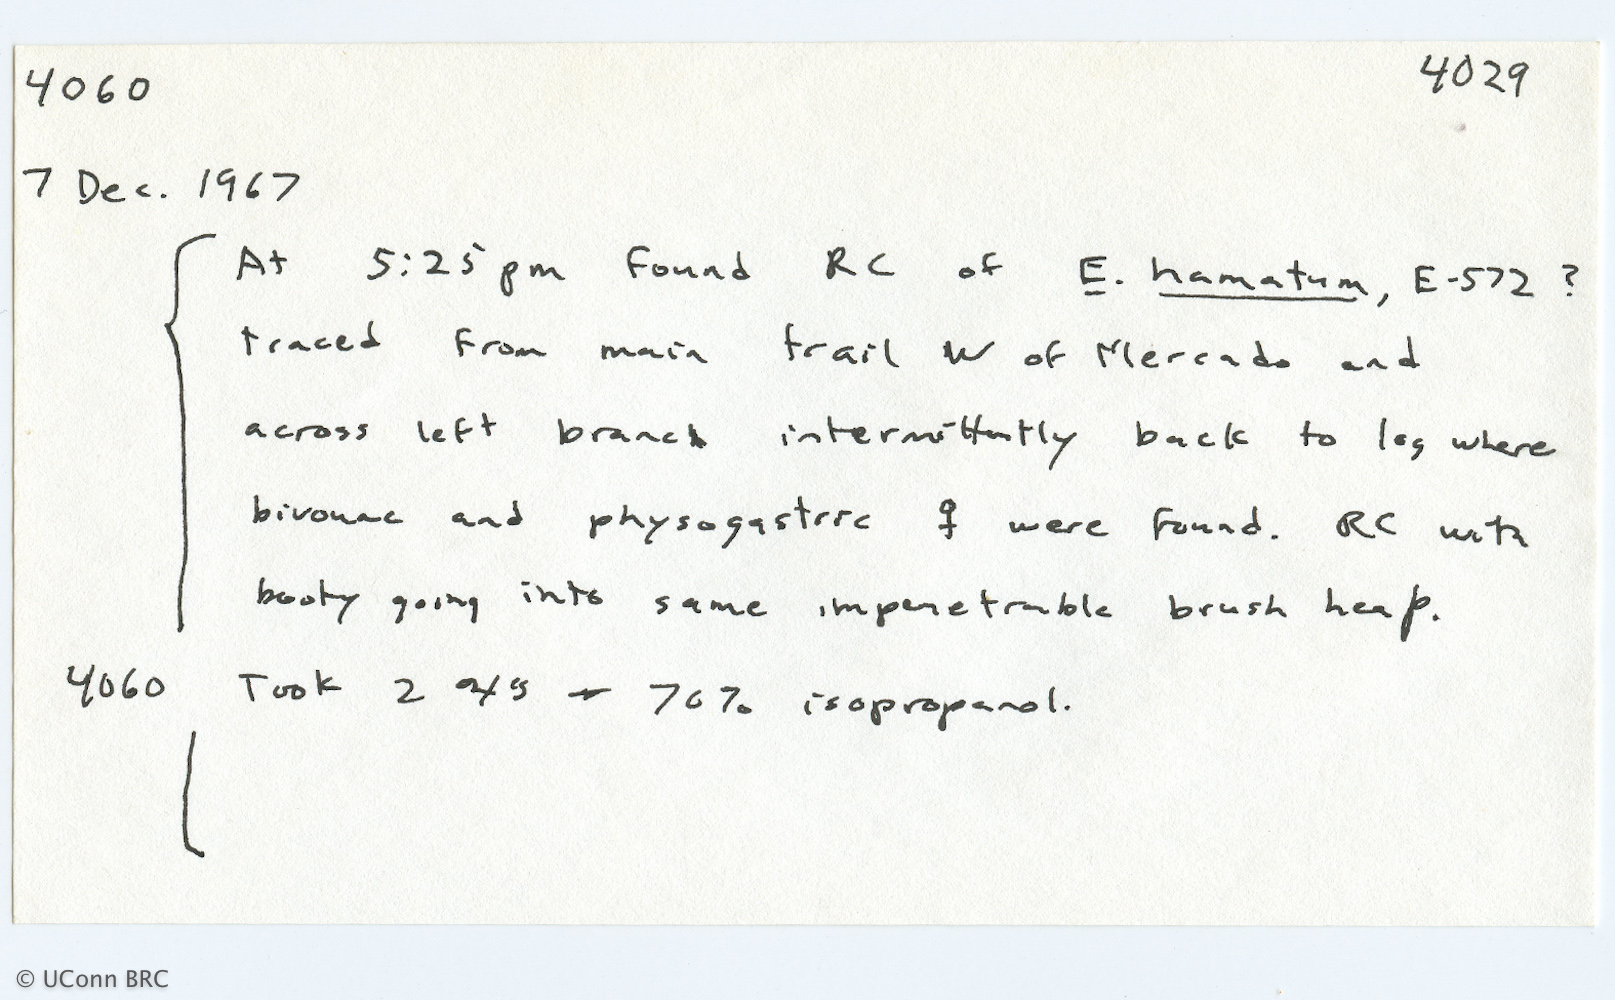 4060 4029
7 Dec. 1967
At 5:25 pm found RC of E. hamatum, E-572 ?
traced from main trail W of Mercado and
across left branch intermittently back to log where
bivouac and physogastric ♀ were found. RC with
booty going into same impenetrable brush heap.
4060 Took 2 70% isopropanol.
© UConn BRC